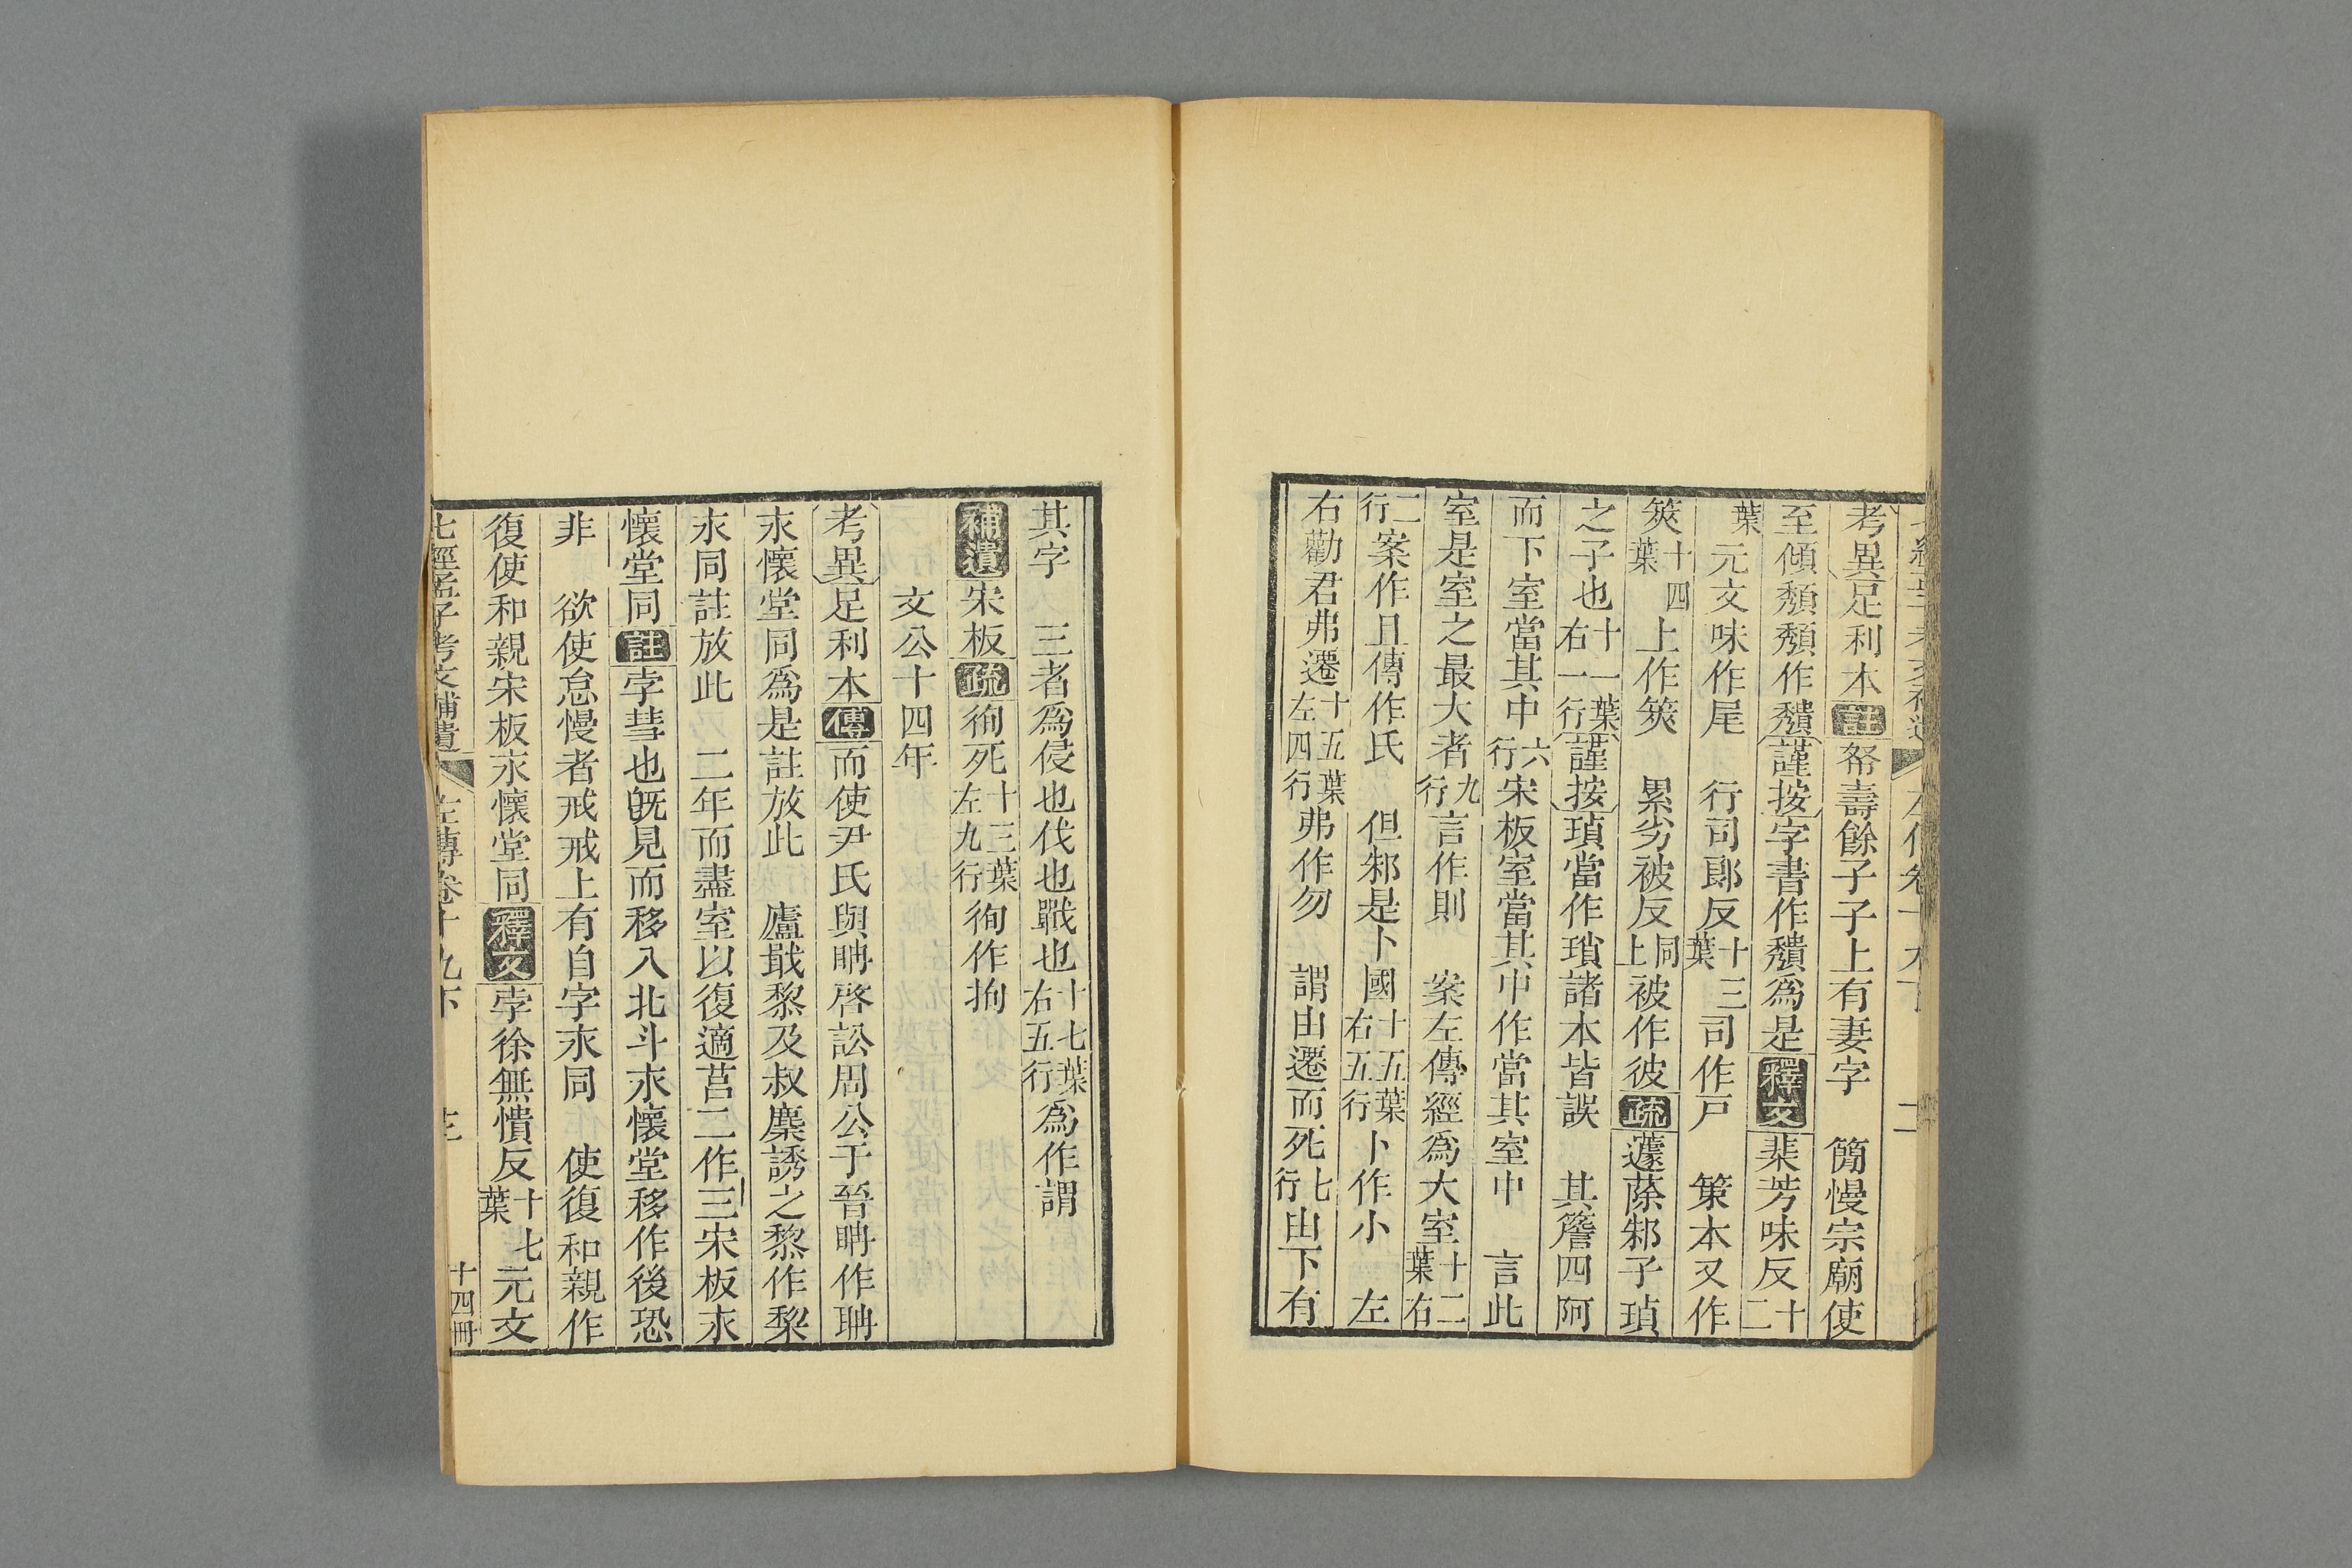 考異足利本註帑壽餘子子上有妻字　簡慢宗廟使
至傾頹頹作穨謹按字書作穨爲是釋文棐芳味反十二
葉元文味作尾　行司郎反十三葉司作戸　策本又作
筴十四葉上作筴　累劣被反同上被作彼疏蘧蒢邾子瑣
之子也十一葉右一行謹按瑣當作瑣諸本皆誤　其簷四阿
而下室當其中六行宋板室當其中作當其室中　言此
室是室之最大者九行言作則　案左傳經爲大室十二葉右
二行案作且傳作氏　但邾是卜國十五葉右五行卜作小　左
右勸君弗遷十五葉左四行弗作勿　謂由遷而死七行由下有
其字　三者爲侵也伐也戰也十七葉右五行爲作謂
補遺宋板疏徇死十三葉左九行徇作拘
文公十四年
考異足利本傳而使尹氏與聃啓訟周公于晉聃作聃
永懷堂同爲是註放此　廬戢黎及叔麇誘之黎作棃
永同註放此　二年而盡室以復適莒二作三宋板永
懷堂同註孛彗也旣見而移入北斗永懷堂移作後恐
非　欲使怠慢者戒戒上有自字永同　使復和親作
復使和親宋板永懷堂同釋文孛徐無憒反十七葉元文
七經孟子考文補遺　左傳卷十九下　十四冊